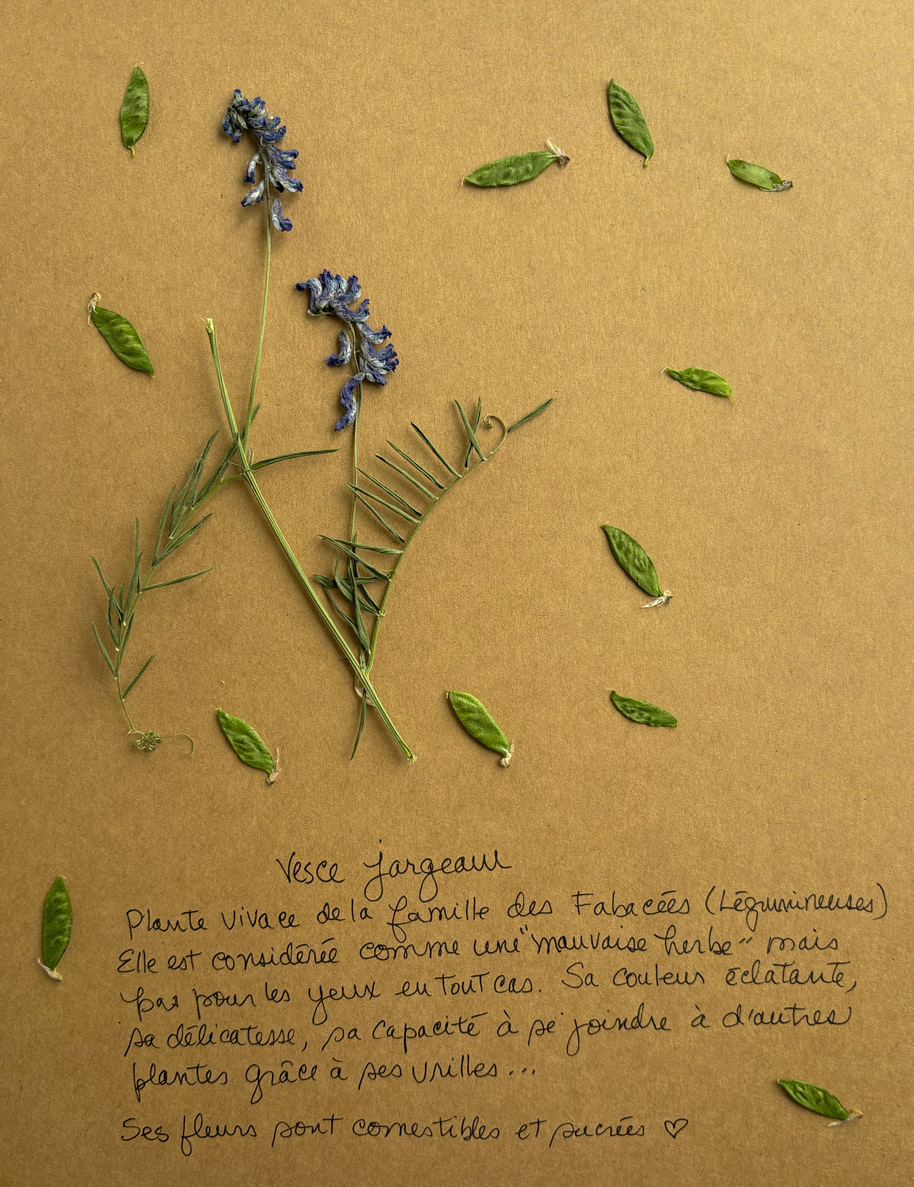 Vesce jargeau
Plante vivace de la famille des Fabacées (Légumineuses)
Elle est considérée comme une "mauvaise herbe" mais
pas pour les yeux en tout cas. Sa couleur éclatante,
sa délicatesse, sa capacité à se joindre à d'autres
plantes grâce à ses vrilles...
Ses fleurs sont comestibles et sucrées ♡